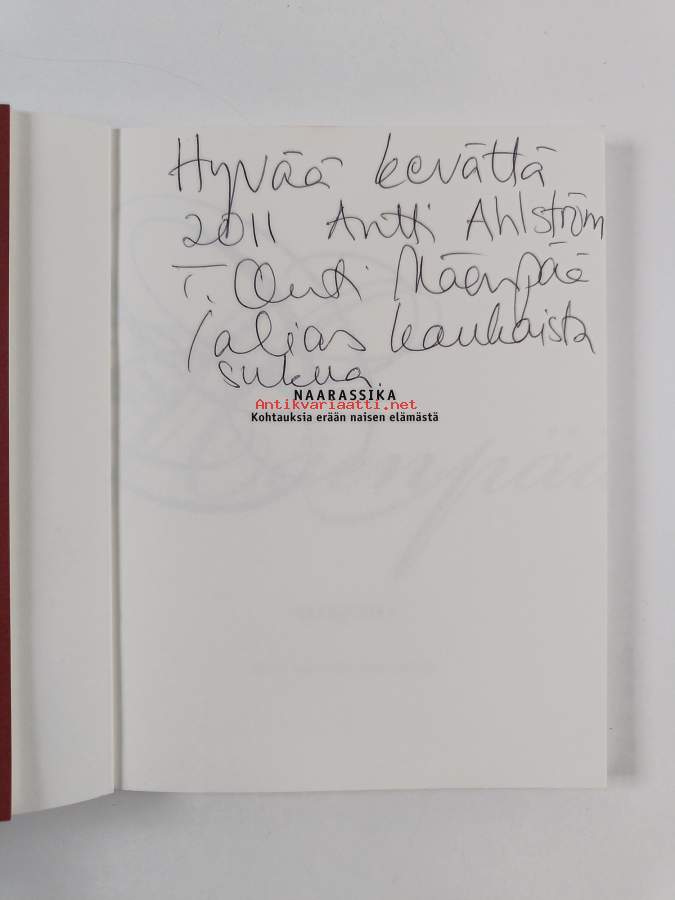 Hyvää kevättä
2011 Antti Ahlström
T. Outi Mäenpää
/alias kaukaista
sukua.
NAARASSIKA
Antikvariaatti.net
Kohtauksia erään naisen elämästä